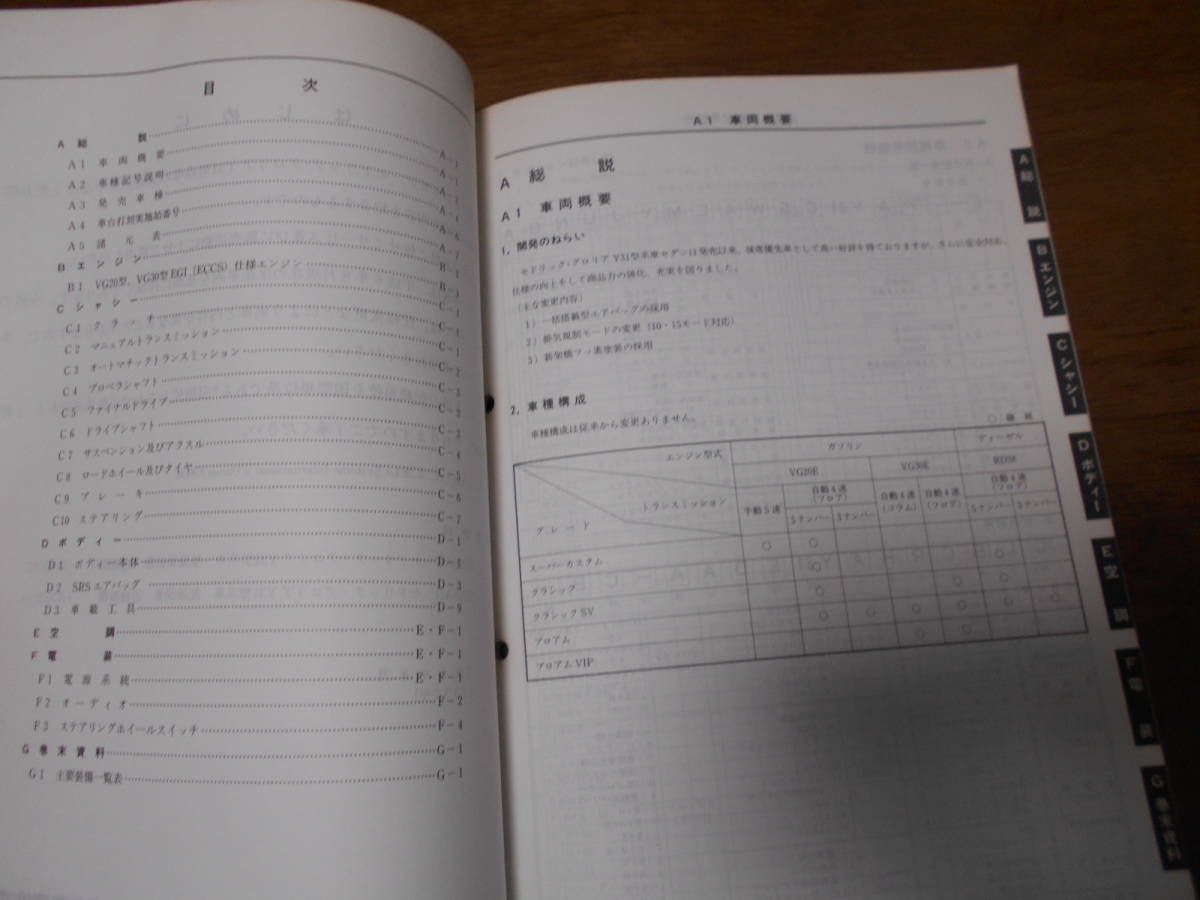 目 次
A 総 説 A-1
A1 車両概要 A-1
A2 車種記号説明 A-1
A3 発売車種 A-4
A4 車台打刻実施始番号 A-6
A5 諸元表 A-7
B エンジン B-1
B1 VG20型、VG30型EGI〔ECCS〕仕様エンジン B-1
C シャシー C-1
C1 クラッチ C-1
C2 マニュアルトランスミッション C-1
C3 オートマチックトランスミッション C-2
C4 プロペラシャフト C-3
C5 ファイナルドライブ C-3
C6 ドライブシャフト C-3
C7 サスペンション及びアクスル C-4
C8 ロードホイール及びタイヤ C-5
C9 ブレーキ C-6
C10 ステアリング C-7
D ボディー D-1
D1 ボディー本体 D-1
D2 SRSエアバッグ D-3
D3 車載工具 D-9
E 空 調 E・F-1
F 電 装 E・F-1
F1 電源系統 E・F-1
F2 オーディオ F-2
F3 ステアリングホイールスイッチ F-4
G 巻末資料 G-1
G1 主要装備一覧表 G-1
A1 車両概要
A 総 説
A1 車両概要
1. 開発のねらい
セドリック・グロリア Y31型系セダンは発売以来、
さらに安全対応、
仕様の向上をして商品力の強化、充実を図りました。
(主な変更内容)
1) 一括搭載型エアバッグの採用
2) 排気規制モードの変更(10・15モード対応)
3) 新架橋フッ素塗装の採用
2. 車種構成
車種構成は従来から変更ありません。
エンジン型式 ガソリン ディーゼル
VG20E VG30E RD28
トランスミッション 手動5速 自動4速(フロア) 自動4速(コラム) 自動4速(フロア) 自動4速(フロア)
グレード 5ナンバー 3ナンバー 5ナンバー 3ナンバー
スーパーカスタム ○ ○
クラシック ○ ○
クラシックSV ○ ○ ○
ブロアム ○ ○ ○ ○ ○ ○
ブロアムVIP ○ ○
A 総 説
B エンジン
C シャシー
D ボディー
E 空 調
F 電 装
G 巻末資料